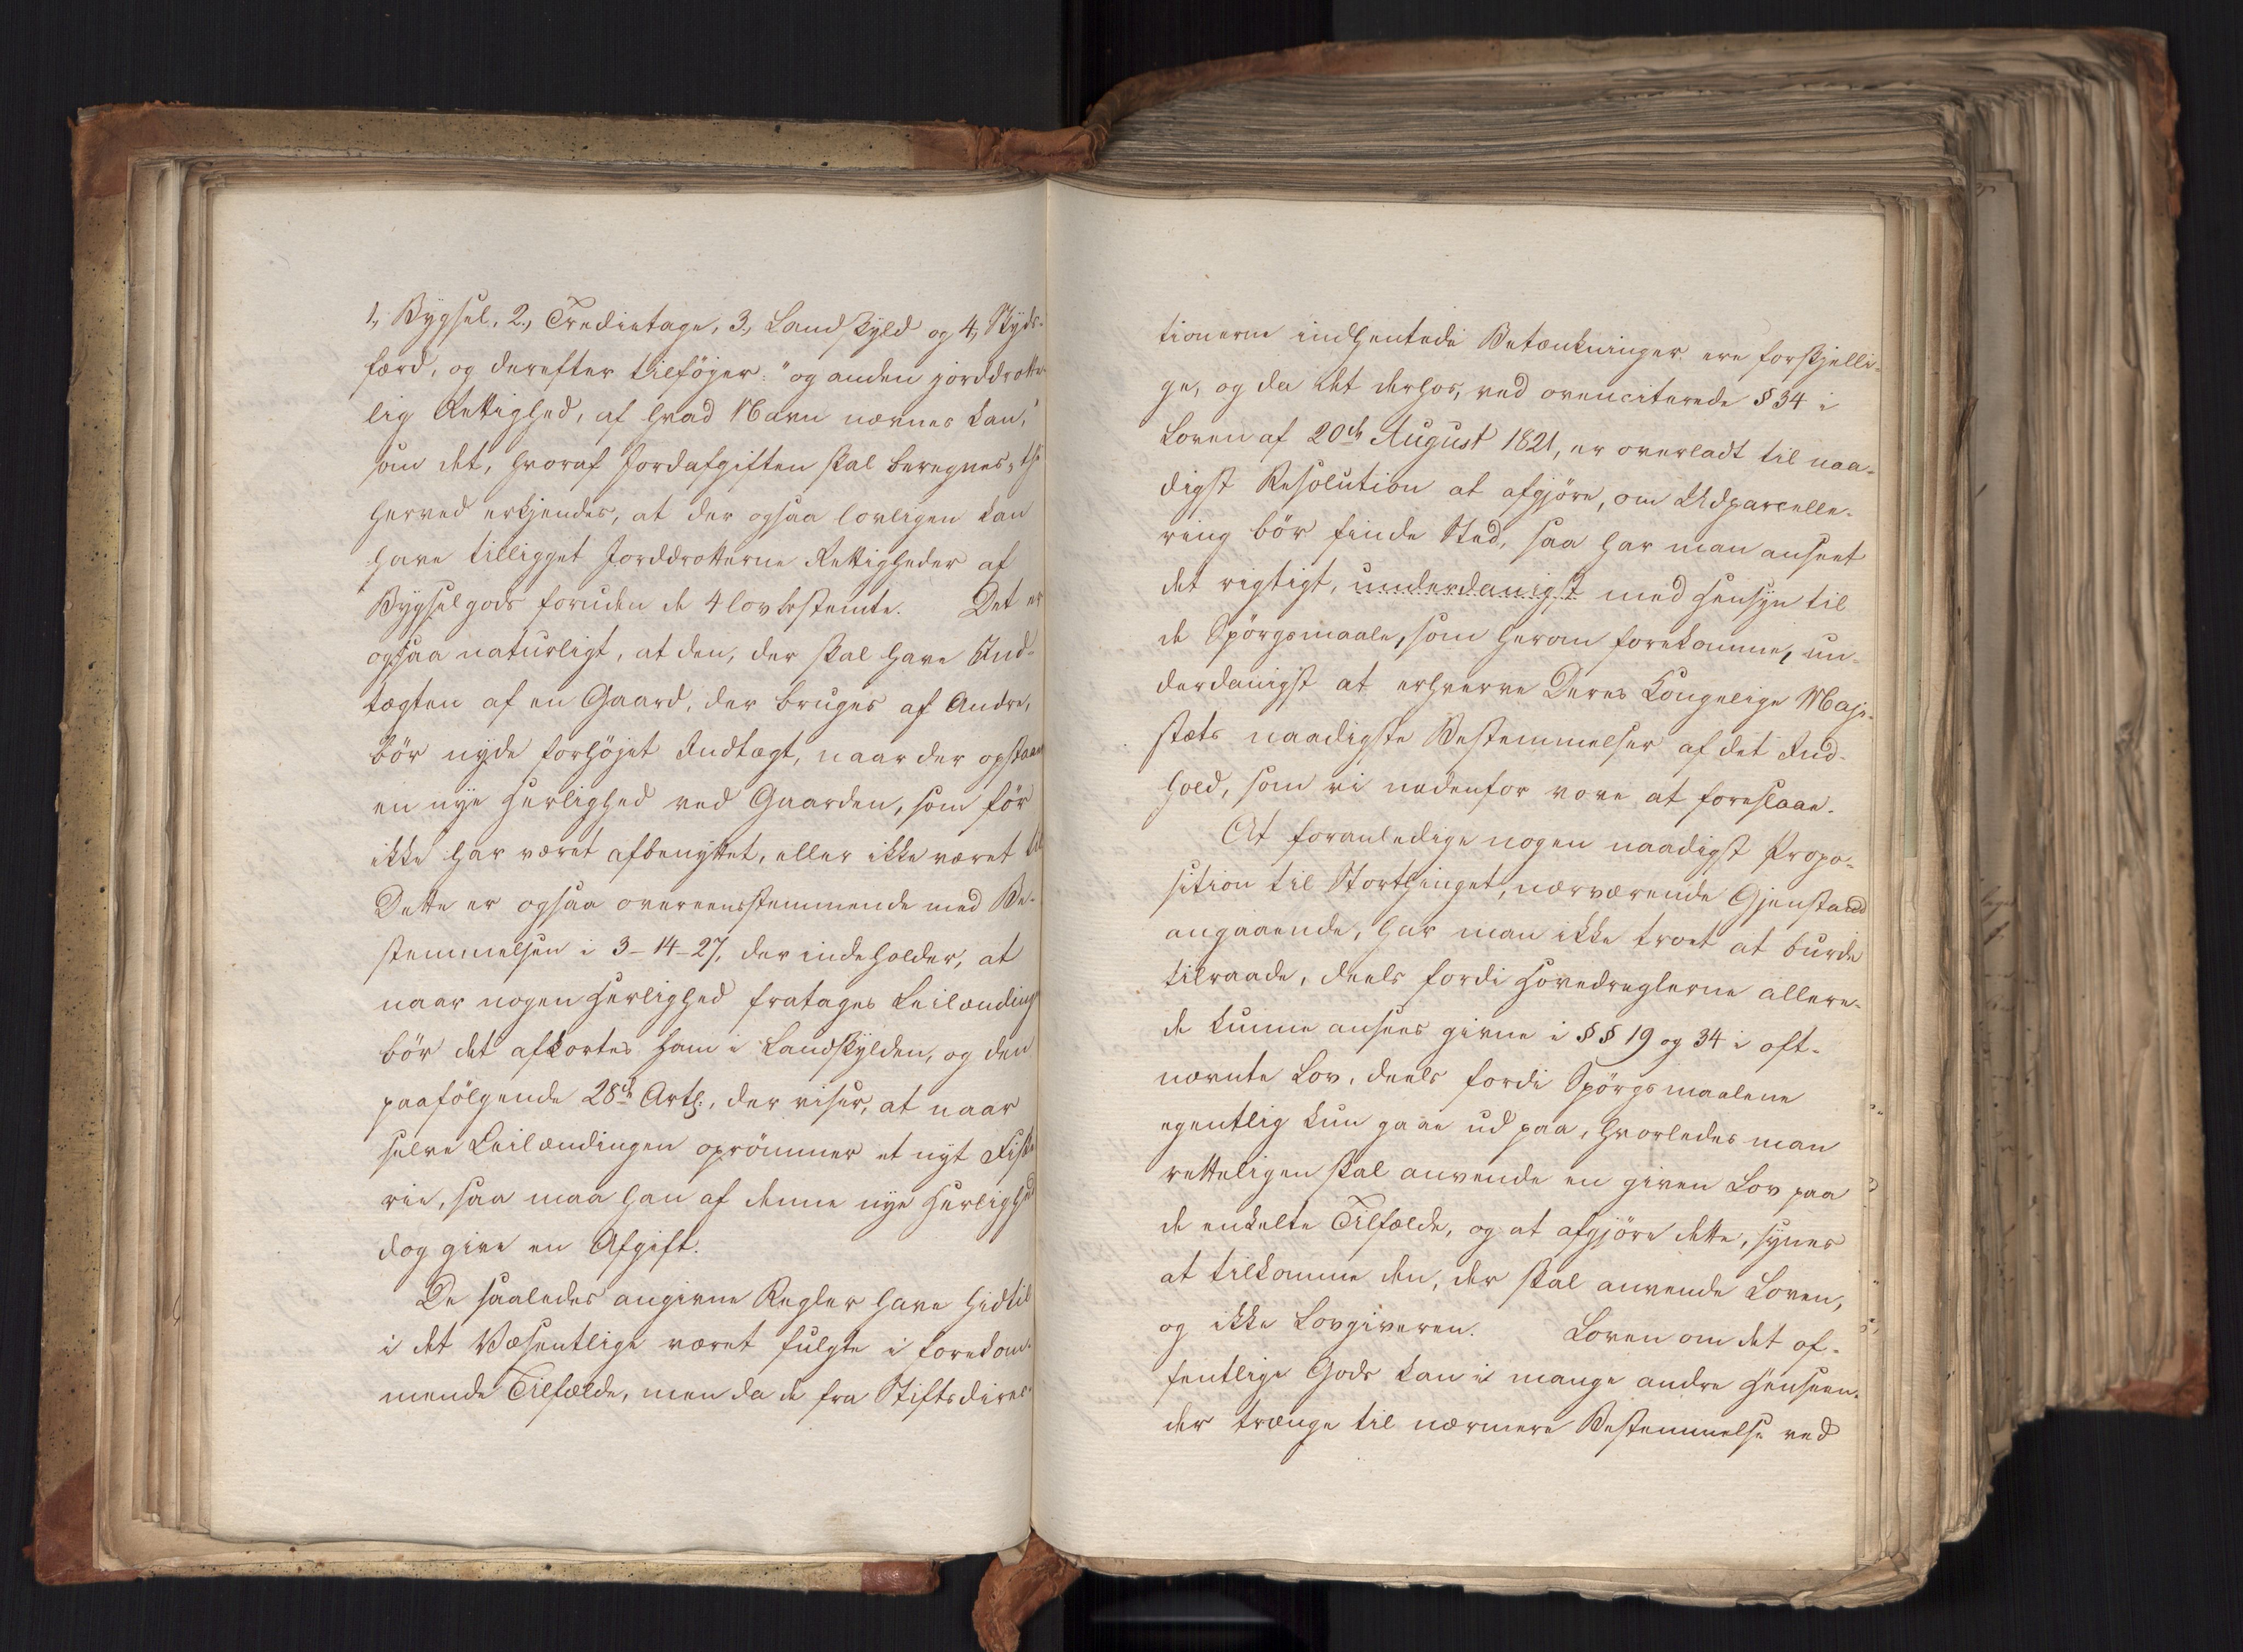 1, Bygsel, 2, Tredietage, 3, Landskyld og 4, Skyds-
færd, og derefter tilföjer: "og anden jorddrotte-
lig Rettighed, af hvad Navn nævnes kan,"
som det, hvoraf Jordafgiften skal beregnes, thi
herved erkjendes, at der ogsaa lovligen kan
have tilligget Jorddrotterne Rettigheder af
Bygselgods foruden de 4 lovbestemte. Det er
ogsaa naturligt, at den, der skal have Ind-
tægten af en Gaard, der bruges af Andre,
bör nyde forhöjet Indtægt, naar der opstaaer
en nye Herlighed ved Gaarden, som för
ikke har været afbenyttet, eller ikke været til
Dette er ogsaa overeensstemmende med Be-
stemmelsen i 3-14-27, der indeholder, at
naar nogen Herlighed fratages Leilænding
bör det afkortes ham i Landskylden, og den
paafölgende 28de Artl., der viser, at naar
selve Leilændingen oprömmer et nyt Fiske-
rie, saa maa han af denne nye Herlighed
dog give en Afgift.
De saaledes angivne Regler have hidtil
i det Væsentlige været fulgte i forekom-
mende Tilfælde, men da de fra Stiftsdirec-
tionerne indhentede Betænkninger ere forskjelli-
ge, og da det derhos, ved ovenciterede § 34 i
Loven af 20de August 1821, er overladt til naa-
digst Resolution at afgjöre, om Udparcelle-
ring bör finde Sted, saa har man anseet
det rigtigt, underdanigst med Hensyn til
de Spörgsmaale, som herom forekomme, un-
derdanigst at erhverve Deres Kongelige Maje-
stæts naadigste Bestemmelser af det Ind-
hold, som vi nedenfor vove at foreslaae.
At foranledige nogen naadigst Propo-
sition til Storthinget, nærværende Gjenstand
angaaende, har man ikke troet at burde
tilraade, deels fordi Hovedreglerne allere-
de kunne ansees givne i §§ 19 og 34 i oft-
nævnte Lov, deels fordi Spörgsmaalene
egentlig kun gaae ud paa, hvorledes man
retteligen skal anvende en given Lov paa
de enkelte Tilfælde, og at afgjöre dette, synes
at tilkomme den, der skal anvende Loven,
og ikke Lovgiveren. Loven om det of-
fentlige Gods kan i mange andre Henseen-
der trænge til nærmere Bestemmelse ved